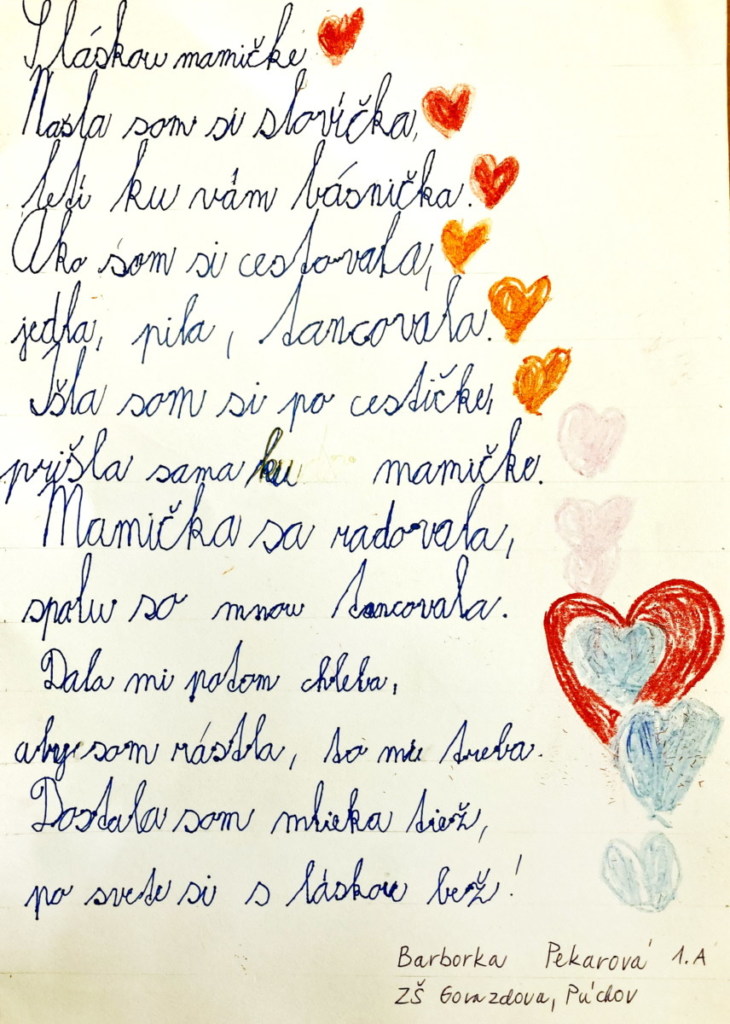 S láskou mamičke
Našla som si slovíčka,
letí ku vám básnička.
Ako som si cestovala,
jedla, pila, tancovala.
Išla som si po cestičke,
prišla sama ku mamičke.
Mamička sa radovala,
spolu so mnou tancovala.
Dala mi potom chleba,
aby som rástla, to mi treba.
Dostala som mlieka tiež,
po svete si s láskou bež!
Barborka Pekarová 1.A
ZŠ Gorazdova, Púchov